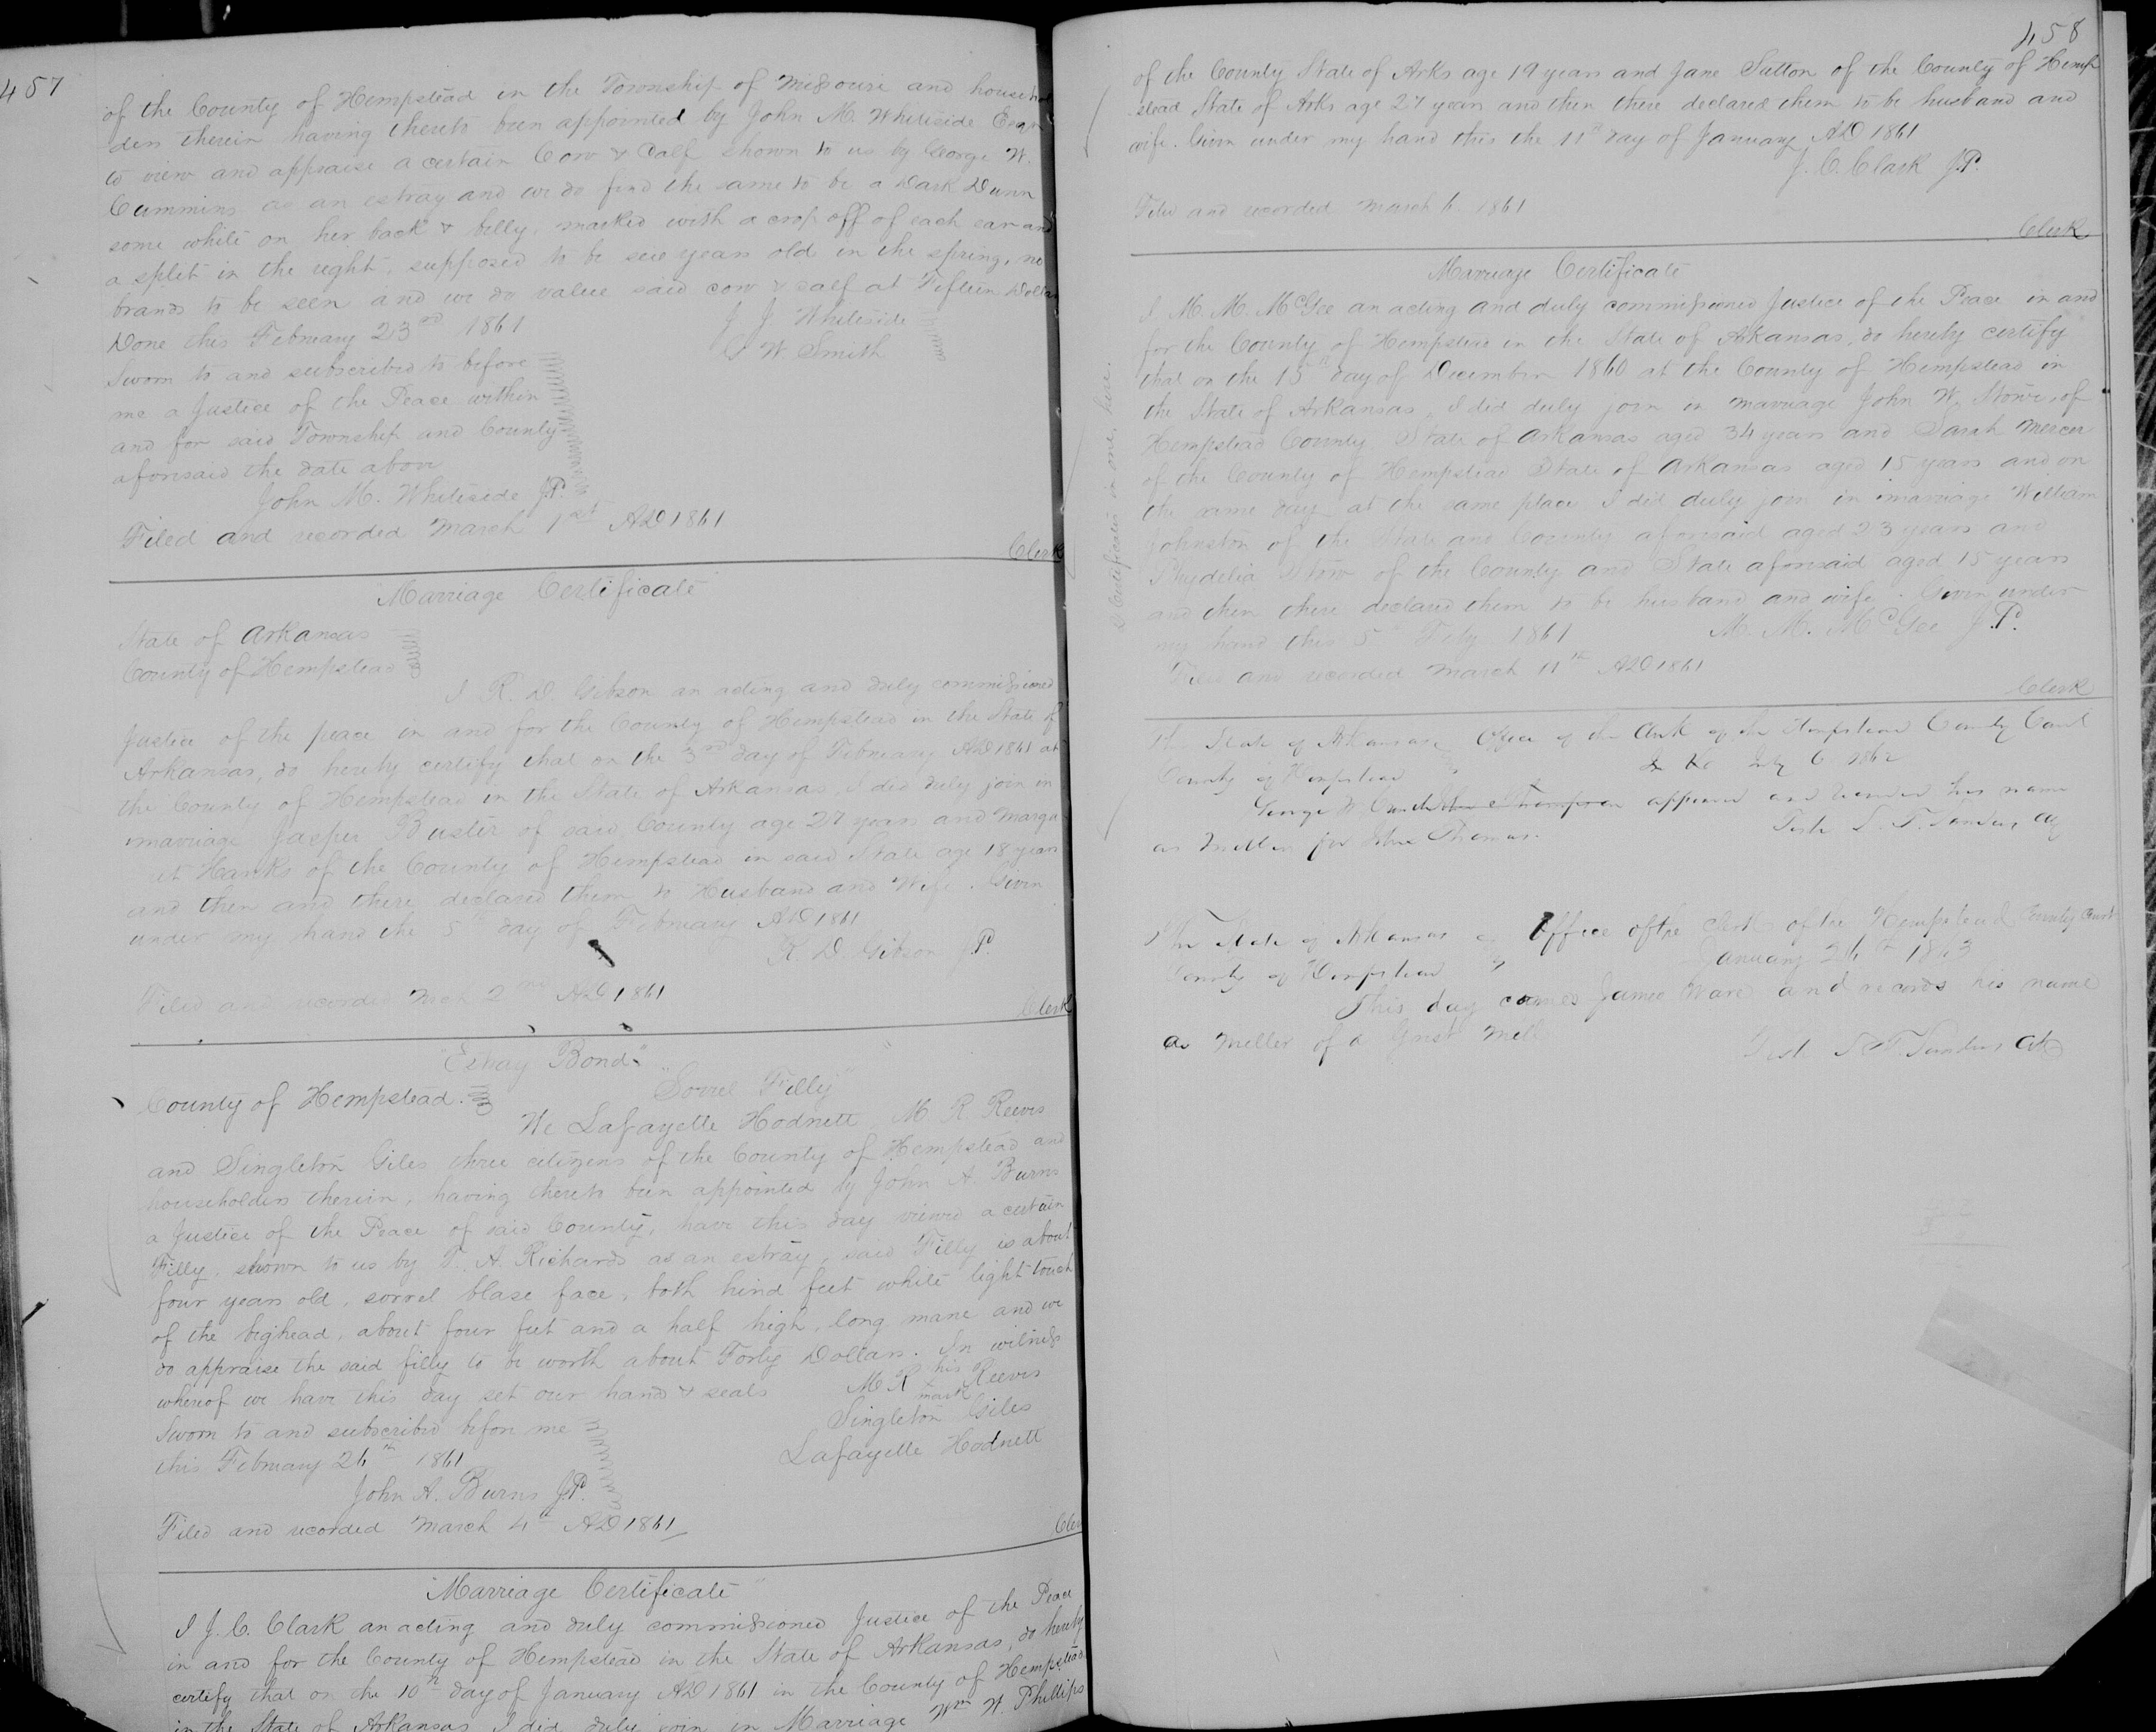 457
of the County of Hempstead in the Township of Missouri and househol
ders therein having thereto been appointed by John M. Whiteside Esqr
to view and appraise a certain Cow & Calf shown to us by George W.
Cummins as an estray and we do find the same to be a Dark Dunn
some white on her back & belly, marked with a crop off of each ear and
a split in the right, supposed to be six years old in the spring, no
brands to be seen and we do value said cow & calf at Fifteen Dollars
Done this February 23rd 1861
J. J. Whiteside
W. Smith
Sworn to and subscribed to before
me a Justice of the Peace within
and for said Township and County
aforesaid the date above
John M. Whiteside J.P.
Filed and recorded March 1st AD 1861
Clerk
"Marriage Certificate"
State of Arkansas
County of Hempstead
I R. D. Gibson an acting and duly commissioned
Justice of the peace in and for the County of Hempstead in the State of
Arkansas, do hereby certify that on the 3rd day of February AD 1861 at
the County of Hempstead in the State of Arkansas, I did duly join in
marriage Jasper Buster of said County age 27 years and Marga
et Hanks of the County of Hempstead in said State age 18 years
and then and there declared them to Husband and Wife. Given
under my hand the 5th day of February AD 1861
R. D. Gibson J.P.
Filed and recorded Mch 2nd AD 1861
Clerk
"Estray Bond"
"Sorrel Filly"
County of Hempstead
We Lafayette Hodnett M R Reeves
and Singleton Giles three citizens of the County of Hempstead and
householders therein, having thereto been appointed by John A. Burns
a Justice of the Peace of said County, have this day viewed a certain
Filly, shown to us by T. A. Richards as an estray, said Filly is about
four years old, sorrel blase face, both hind feet white light touch
of the bighead, about four feet and a half high, long mane and we
do appraise the said filly to be worth about Forty Dollars. In witness
whereof we have this day set our hands & seals
M R his mark Reeves
Singleton Giles
Lafayette Hodnett
Sworn to and subscribed before me
this February 26th 1861
John A. Burns J.P.
Filed and recorded March 4th AD 1861
Cler
"Marriage Certificate"
I J. C. Clark an acting and duly commissioned Justice of the Peace
in and for the County of Hempstead in the State of Arkansas, do hereby
certify that on the 10th day of January AD 1861 in the County of Hempstead
in the State of Arkansas I did duly join in Marriage Wm W. Phillips
458
of the County State of Arks age 19 years and Jane Sutton of the County of Hemp
stead State of Arks age 27 years and then there declared them to be husband and
wife. Given under my hand this the 11th day of January AD 1861
J. C. Clark J.P.
Filed and recorded March 6 1861
Clerk
Marriage Certificate
I M. M. McGee an acting and duly commissioned Justice of the Peace in and
for the County of Hempstead in the State of Arkansas, do hereby certify
that on the 15th day of December 1860 at the County of Hempstead in
the State of Arkansas, I did duly join in marriage John W. Stowe, of
Hempstead County State of Arkansas aged 34 years and Sarah Mercer
of the County of Hempstead State of Arkansas aged 15 years and on
the same day at the same place I did duly join in marriage William
Johnston of the State and County aforesaid aged 23 years and
Phydelia Stow of the County and State aforesaid aged 15 years
and then there declared them to be husband and wife. Given under
my hand this 5th Feby 1861
M. M. McGee J.P.
Filed and recorded March 11th AD 1861
Clerk
2 Certificates in one, here.
The State of Arkansas Office of the Clerk of the Hempstead County Court
County of Hempstead July 6 1862
George W appeared and his name
as Miller for Thomas.
Teste S. T. Sanders Clk
The State of Arkansas Office of the Clerk of the Hempstead County Court
County of Hempstead January 26th 1863
This day comes James Ward and records his name
as Miller of a Grist Mill
Test S T Sanders Clk